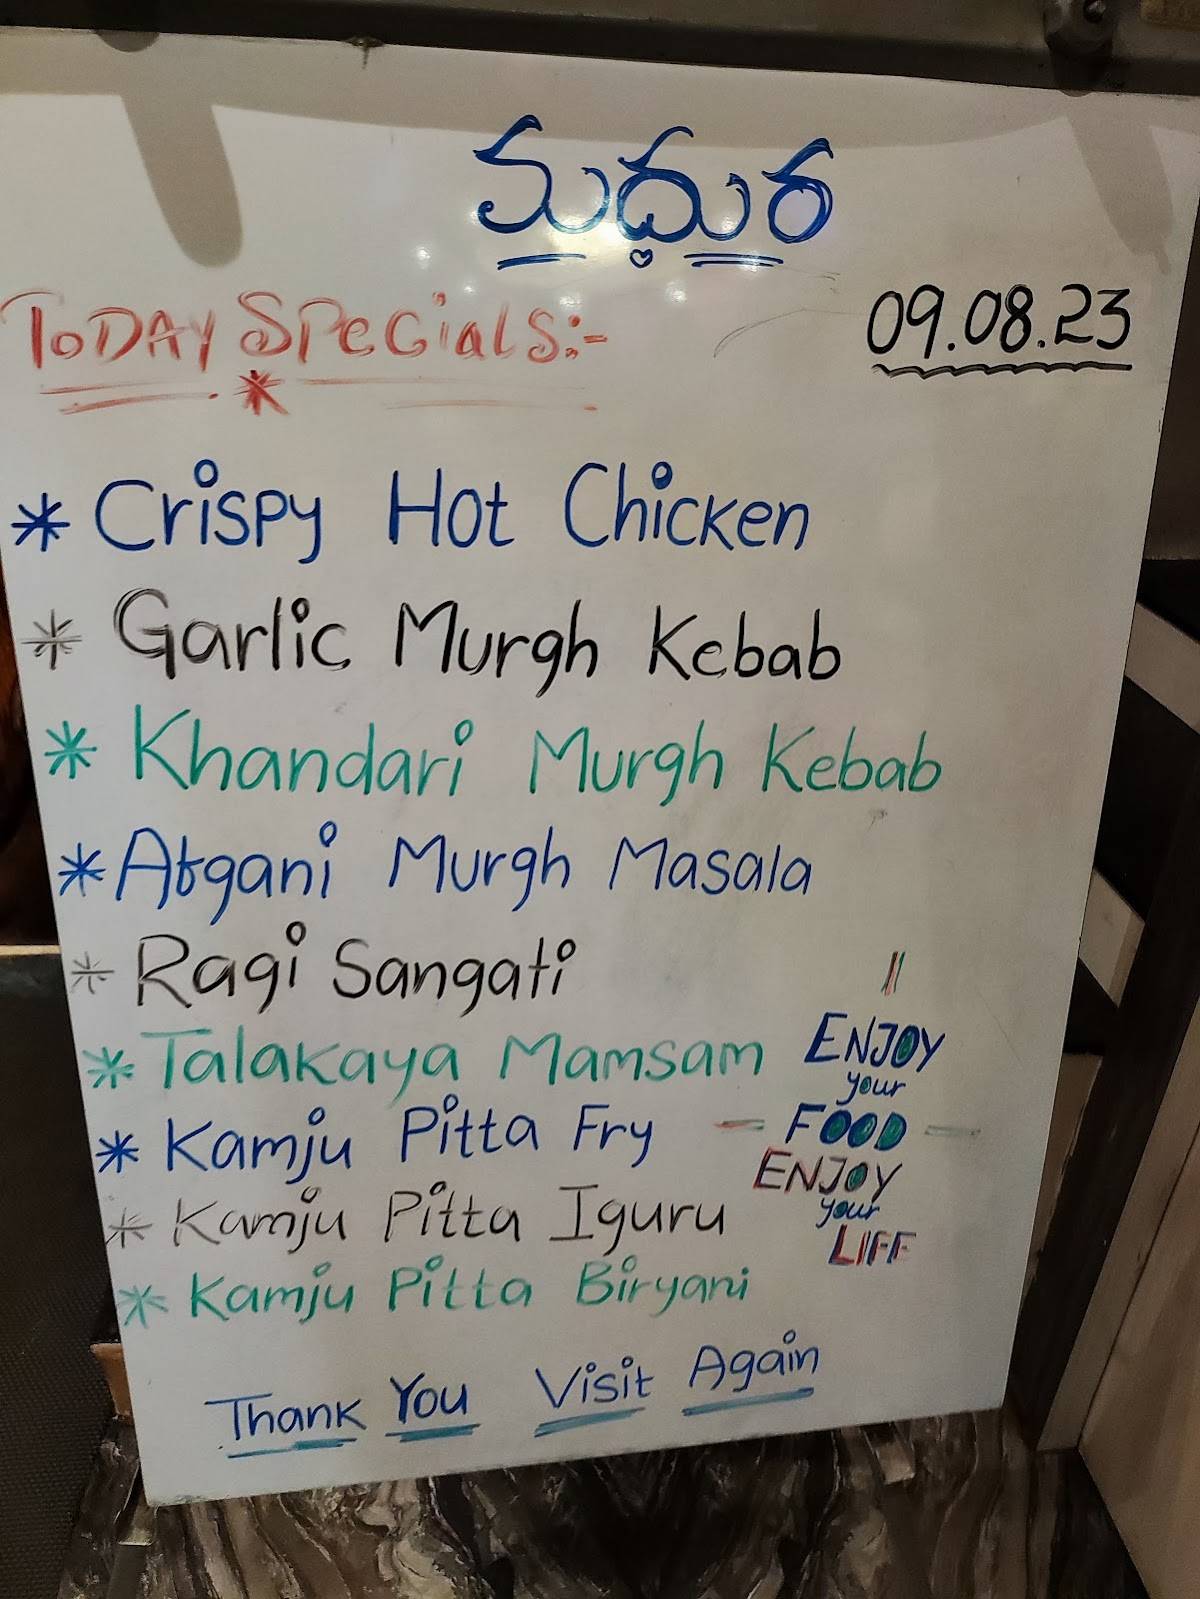 మధుర
TODAY SPecialS:-
09.08.23
* Crispy Hot Chicken
* Garlic Murgh Kebab
* Khandari Murgh Kebab
* Afgani Murgh Masala
* Ragi Sangati
* Talakaya Mamsam
* Kamju Pitta Fry
* Kamju Pitta Iguru
* Kamju Pitta Biryani
ENJOY
your
FOOD
ENJOY
your
LIFE
Thank You Visit Again